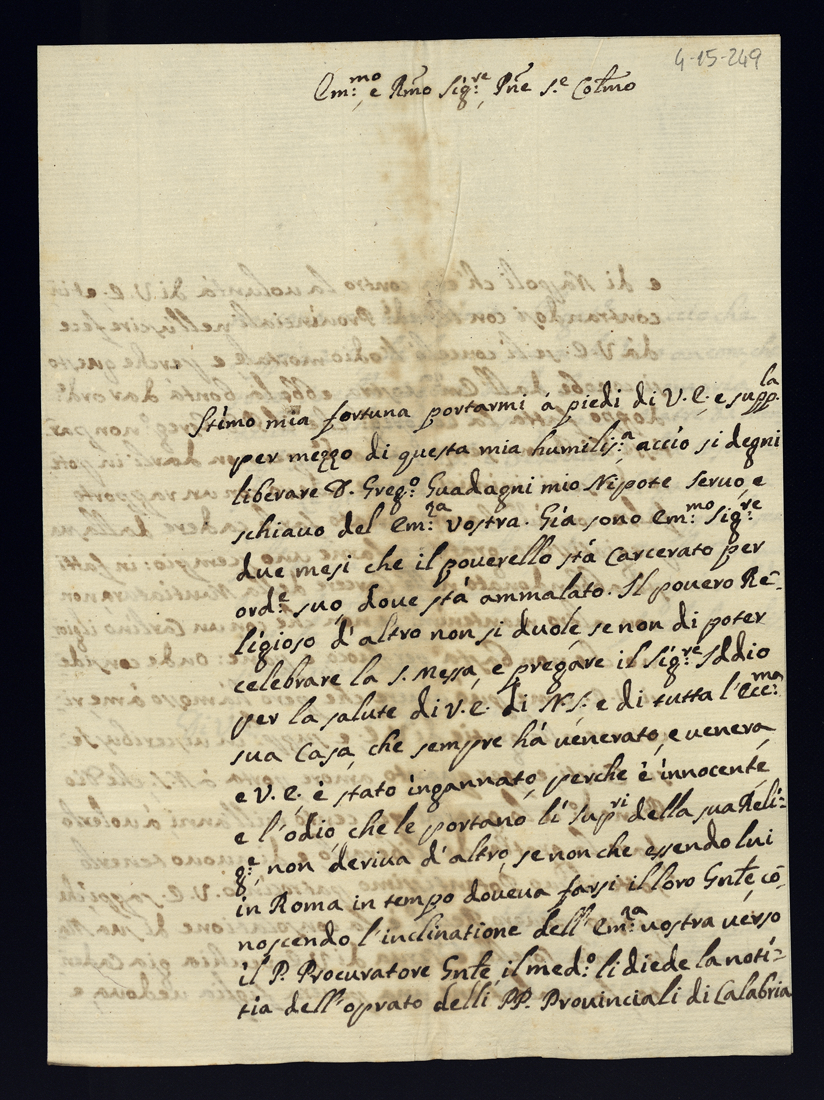 4-15-249
Em:mo e Rmo Sigre Pne S.e Colmo
Stimo mia fortuna portarmi á piedi di V.E. e supp.la
per mezzo di questa mia humilis:a accio si degni
liberare D. Grego Guadagni mio Nipote servo, e
schiavo del Em:za Vostra. Giá sono Em:mo Sigre
due mesi che il poverello stá carcerato per
orde suo, dove stá ammalato. Il povero Re=
ligioso d'altro non si duole, se non di poter
celebrare la S. Messa, e pregare il Sig:re Iddio
per la salute di V.E. di N.S. e di tutta l'Ecc:ma
sua Casa, che sempre há venerato, e venera
e V.E. é stato ingannato, perche é innocente,
e l'odio, che le portano li Supri della sua Reli=
g:e, non deriva d'altro, se non che essendo lui
in Roma in tempo doveva farsi il loro Gnle, co=
noscendo l'inclinatione dell'Em:za vostra verso
il P. Procuratore Gnle, il medo li diede la noti=
tia dell'oprato delli PP. Provinciali di Calabria